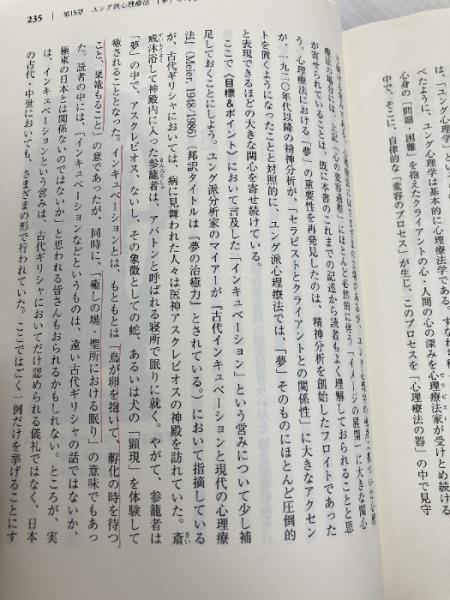 は、
べたように、ユング心理学は基本的に心理療法学である。すなわち
心身の「問題・困難」を抱えたクライアントの心・人間の心の深みを心理療法家が受けとめ続ける
セラピスト
中で、そこに、自律的な「変容のプロセス」が生じ、このプロセスを「心理療法の器」の中で見守
235 第15章 ユング派心理療法
が寄せられていることは、既に本書のこれまでの記述から読者もよく理解しておられることと思
う。心理療法における「夢」の重要性を再発見したのは、精神分析を創始したフロイトであった
が、一九二〇年代以降の精神分析が、「セラピストとクライアントとの関係性」に大きなアクセン
トを置くようになったことと対照的に、ユング派心理療法では、「夢」そのものにほとんど圧倒的
と表現できるほどの大きな関心を寄せ続けている。
ここで〈目標&ポイント〉において言及した「インキュベーション」という営みについて少し補
足しておくことにしよう。ユング派分析家のマイアーが『古代インキュベーションと現代の心理療
法』(Meier, 1948/1986)(邦訳タイトルは『夢の治癒力』とされている。)において指摘している
が、古代ギリシャにおいては、病に見舞われた人々は医神アスクレピオスの神殿を訪れていた。斎
さい
戒沐浴して神殿内に入った参籠者は、アバトンと呼ばれる寝所で眠りに就く。やがて、参籠者は
かいもくよく
さんろうしゃ
「夢」の中で、アスクレピオス、ないし、その象徴としての蛇、あるいは犬の「顕現」を体験して
癒されることとなった。「インキュベーションとは、もともとは、「鳥が卵を抱いて、孵化の時を待つ
こと、巣籠もること」の意であったが、同時に、「癒しの場・聖所における眠り」の意味でもあっ
た。読者の中には、「インキュベーションなどというものは、遠い古代ギリシャの話ではないか、
極東の日本とは関係ないのではないか」と思われる皆さんもおられるかもしれない。ところが、実
は、インキュベーションという営みは、古代ギリシャにおいてだけ認められる儀礼ではなく、日本
の古代・中世においても、さまざまの形で行われていた。ここではごく一例だけを挙げることにす